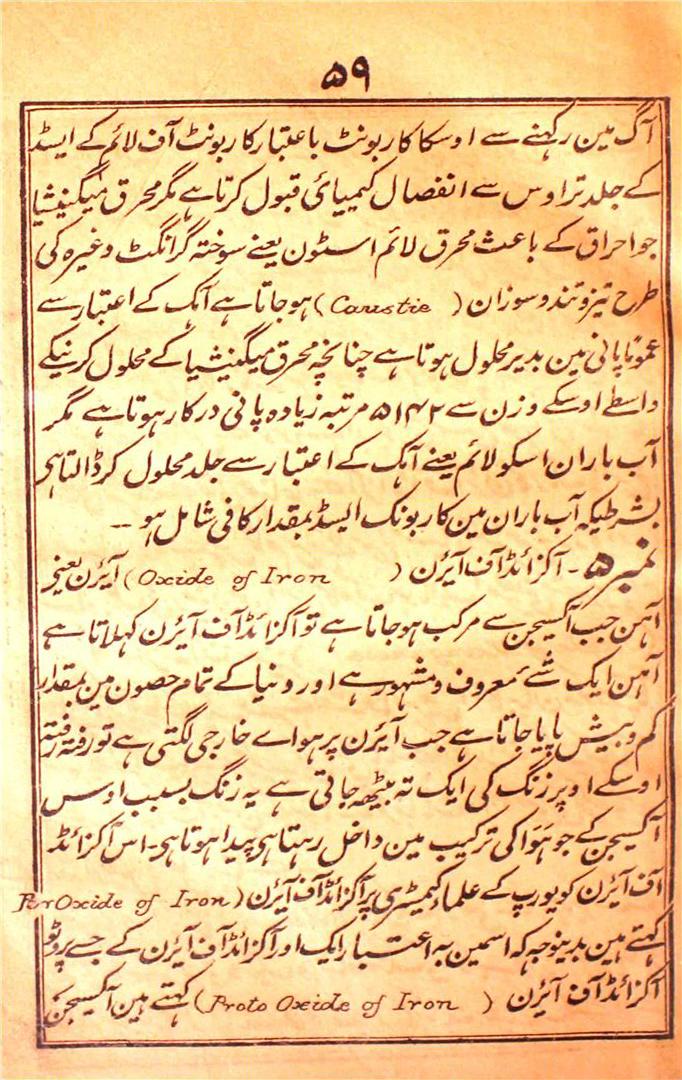 ۵۹
آگ مین رکہنے سے اوسکا کاربونٹ باعتبار کاربونٹ آف لائم کے ایسڈ
کے جلد تر اوس سے انفصال کیمیائی قبول کرتا ہے مگر محرق میگنیشیا
جو احراق کے باعث محرق لائم اسٹون یعنے سوختہ گرانگٹ وغیرہ کی
طرح تیز و تند و سوزان (Caustie) ہو جاتا ہے آہک کے اعتبار سے
عموماً پانی مین بدیر محلول ہوتا ہے چنانچہ محرق میگنیشیا کے محلول کرنیکے
واسطے اوسکے وزن سے ۵۱۴۲ مرتبہ زیادہ پانی درکار ہوتا ہے مگر
آب باران اسکو لائم یعنے آہک کے اعتبار سے جلد محلول کر ڈالتا ہی
بشرطیکہ آب باران مین کاربونک ایسڈ بمقدار کافی شامل ہو --
نمبر ۵ - آکزائڈ آف آیئرن (Oxide of Iron) آیئرن یعنی
آہن جب آکسیجن سے مرکب ہو جاتا ہے تو آکزائڈ آف آیئرن کہلاتا ہے
آہن ایک شے معروف و مشہور ہے اور دنیا کے تمام حصون مین بمقدار
کم و بیش پایا جاتا ہے جب آیئرن پر ہواے خارجی لگتی ہے تو رفتہ رفتہ
اوسکے اوپر زنگ کی ایک تہ بیٹھ جاتی ہے یہ زنگ بسبب اوس
آکسیجن کے جو ہَوَا کی ترکیب مین داخل رہتا ہی پیدا ہوتا ہی - اس آکزائڈ
آف آیئرن کو یورپ کے علماء کیمیسٹری پر آکزائڈ آف آیئرن (Per Oxide of Iron)
کہتے ہین بدینوجہ کہ اسمین بہ اعتبار ایک اور آکزائڈ آف آیئرن کے جسے پروٹو
آکزائڈ آف آیئرن (Proto Oxide of Iron) کہتے ہین آکسیجن